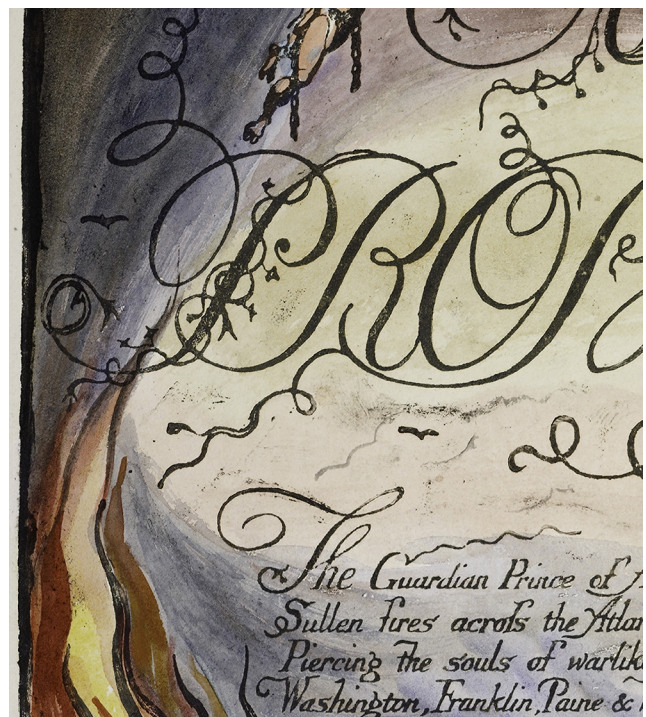 PROP
The Guardian Prince of A
Sullen fires acroſs the Atlan
Piercing the souls of warlik
Washington, Franklin, Paine &